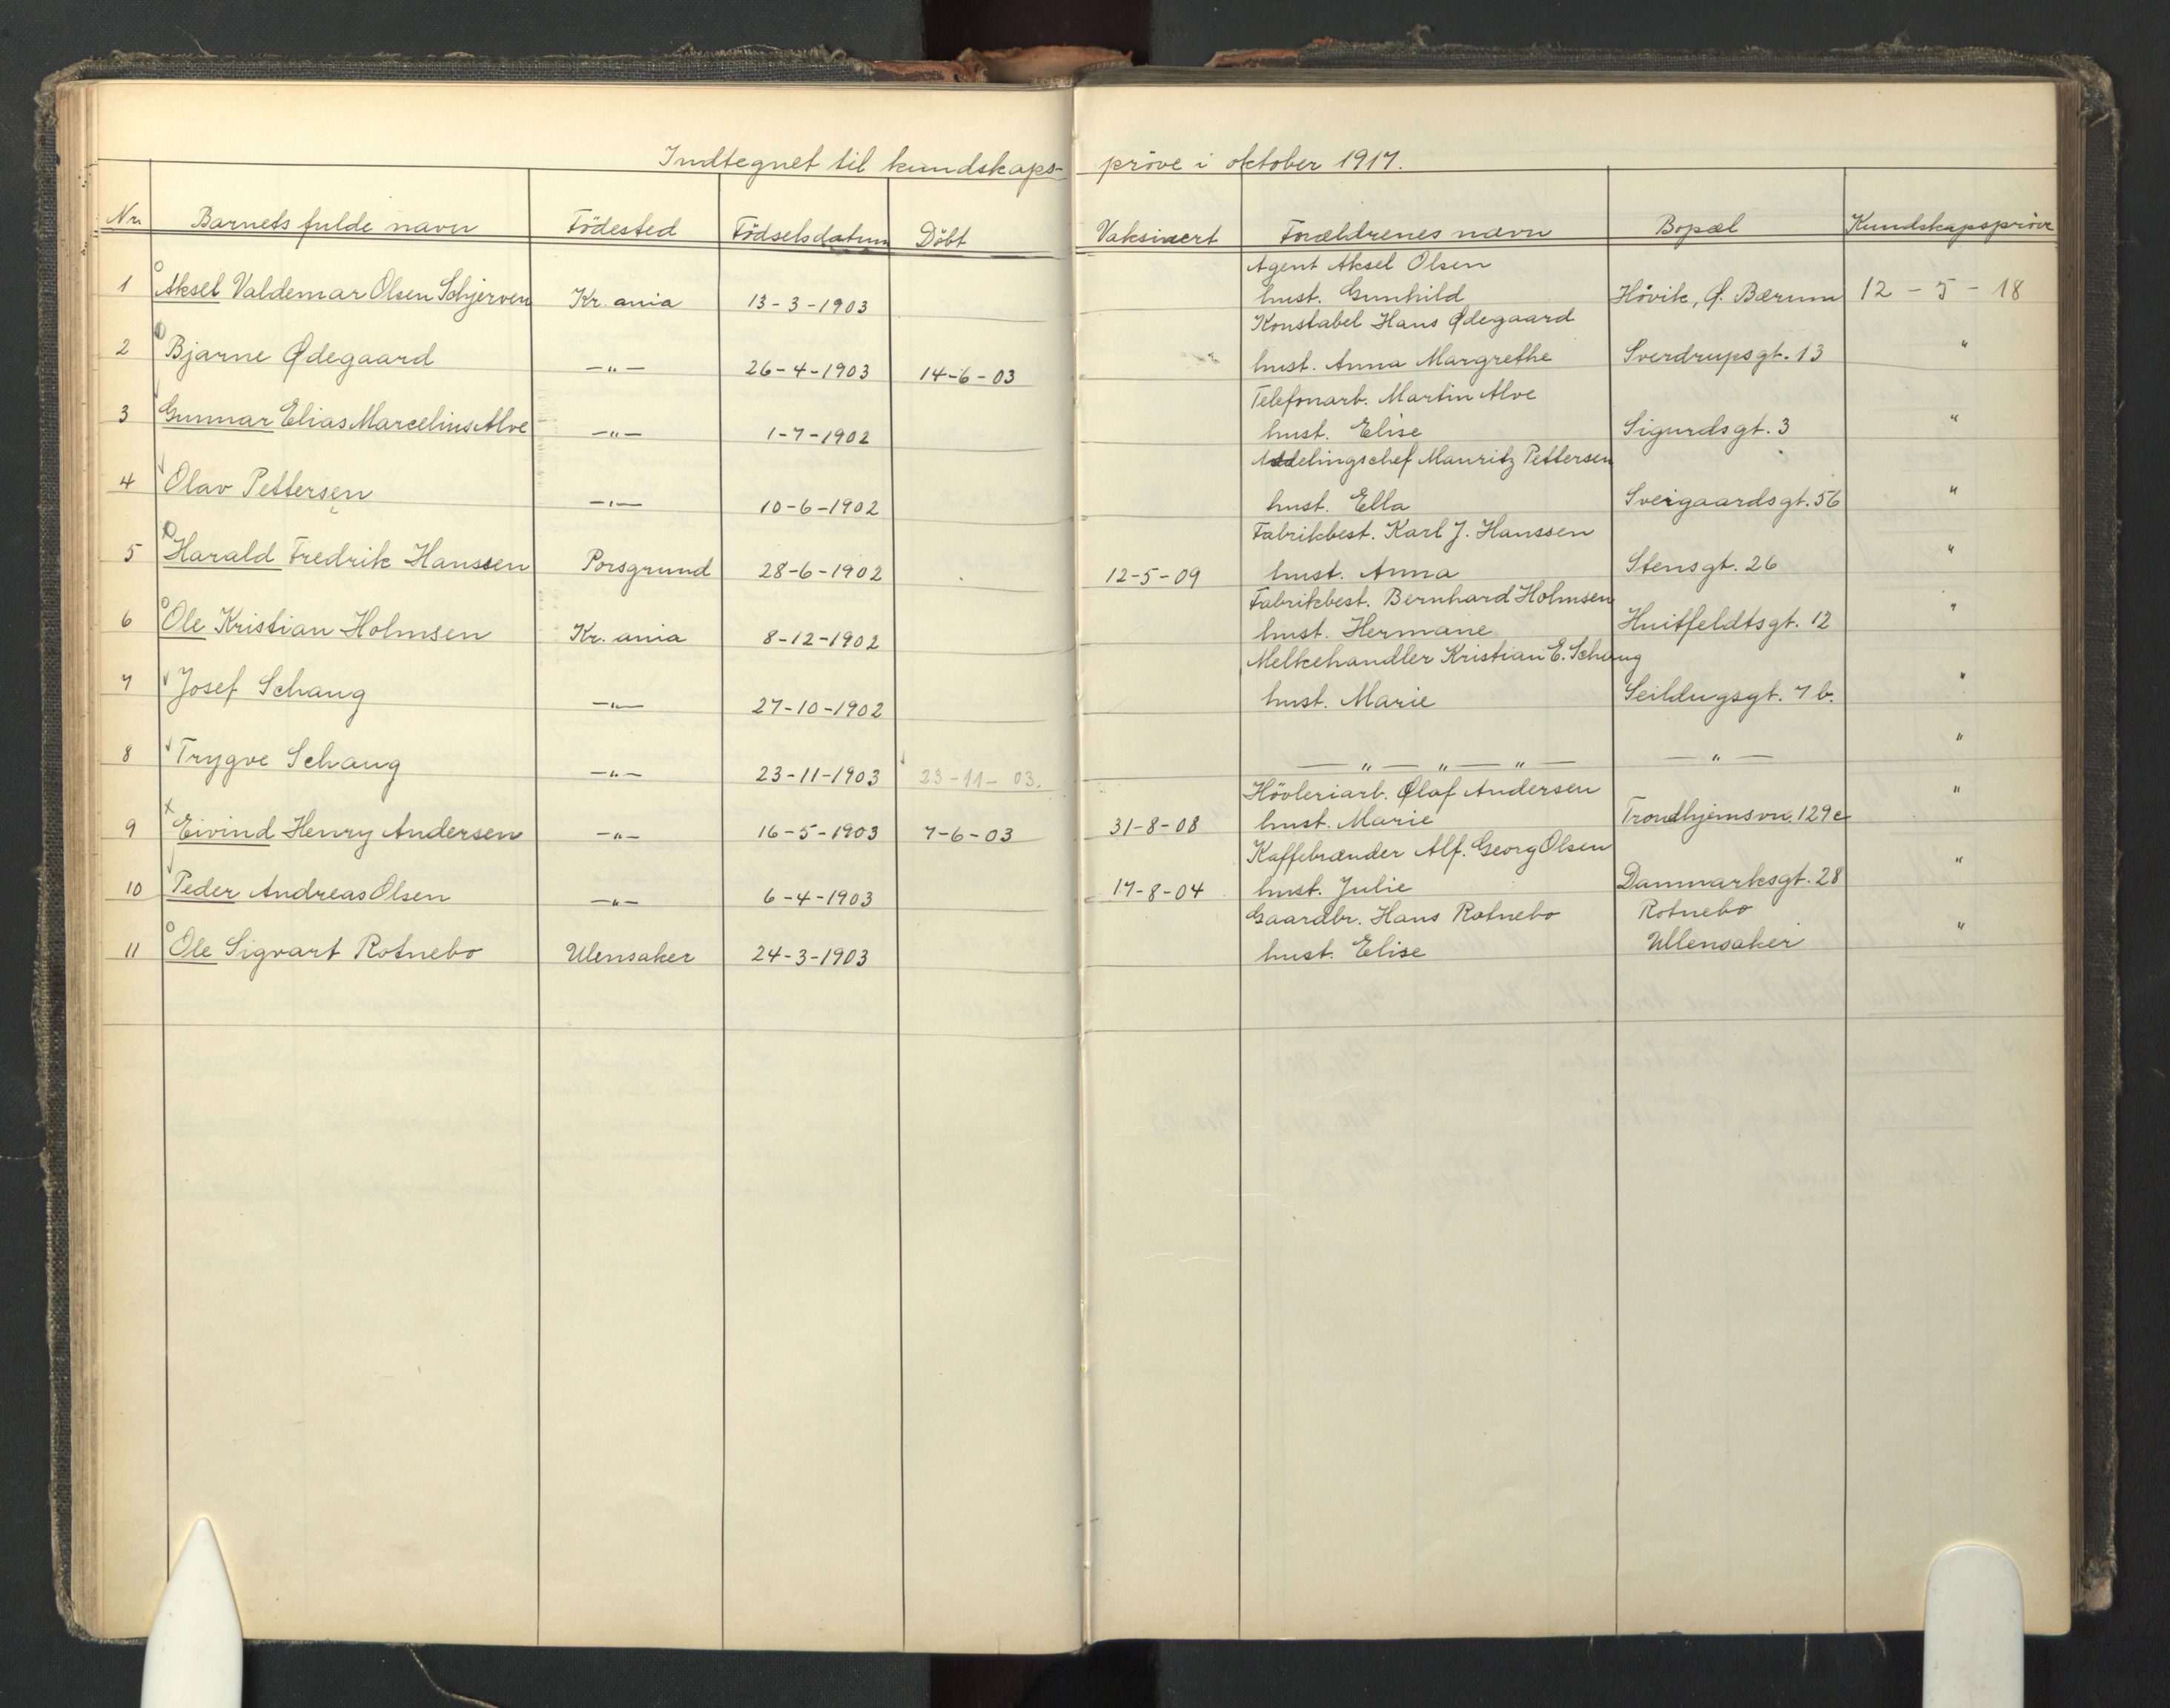 Indtegnet til kundskaps- prøve i oktober 1917.
Nr. Barnets fulde navn Födested Födselsdatum Döbt Vaksinert Forældrenes navn Bopæl Kundskapsprøve
Agent Aksel Olsen
1 Aksel Valdemar Olsen Schjerven Kr.ania 13-3-1903 hust. Gunhild Hövik, Ø. Bærum 12-5-18
Konstabel Hans Ødegaard
2 Bjarne Ødegaard —"— 26-4-1903 14-6-03 hust. Anna Margrethe Sverdrupsgt. 13 "
Telefonarb. Martin Alve
3 Gunnar Elias Marcelius Alve —"— 1-7-1902 hust. Elise Sigurdsgt. 3 "
Avdelingschef Mauritz Pettersen
4 Olav Pettersen —"— 10-6-1902 hust. Ella Sveigaardsgt. 56 "
Fabrikbest. Karl J. Hanssen
5 Harald Fredrik Hanssen Porsgrund 28-6-1902 12-5-09 hust. Anna Stensgt. 26 "
Fabrikbest. Bernhard Holmsen
6 Ole Kristian Holmsen Kr.ania 8-12-1902 hust. Hermane Huitfeldtsgt. 12 "
Melkehandler Kristian E. Schaug
7 Josef Schaug —"— 27-10-1902 hust. Marie Seildugsgt. 7 b. "
8 Trygve Schaug —"— 23-11-1903 23-11-03. — " — " — " — — " — "
Hövleriarb. Olaf Andersen
9 Eivind Henry Andersen —"— 16-5-1903 7-6-03 31-8-08 hust. Marie Trondhjemsvn. 129c "
Kaffebrænder Alf. Georg Olsen
10 Peder Andreas Olsen —"— 6-4-1903 17-8-04 hust. Julie Danmarksgt. 28 "
Gaardbr. Hans Rotnebo Rotnebo
11 Ole Sigvart Rotnebo Ulensaker 24-3-1903 hust. Elise Ullensaker "